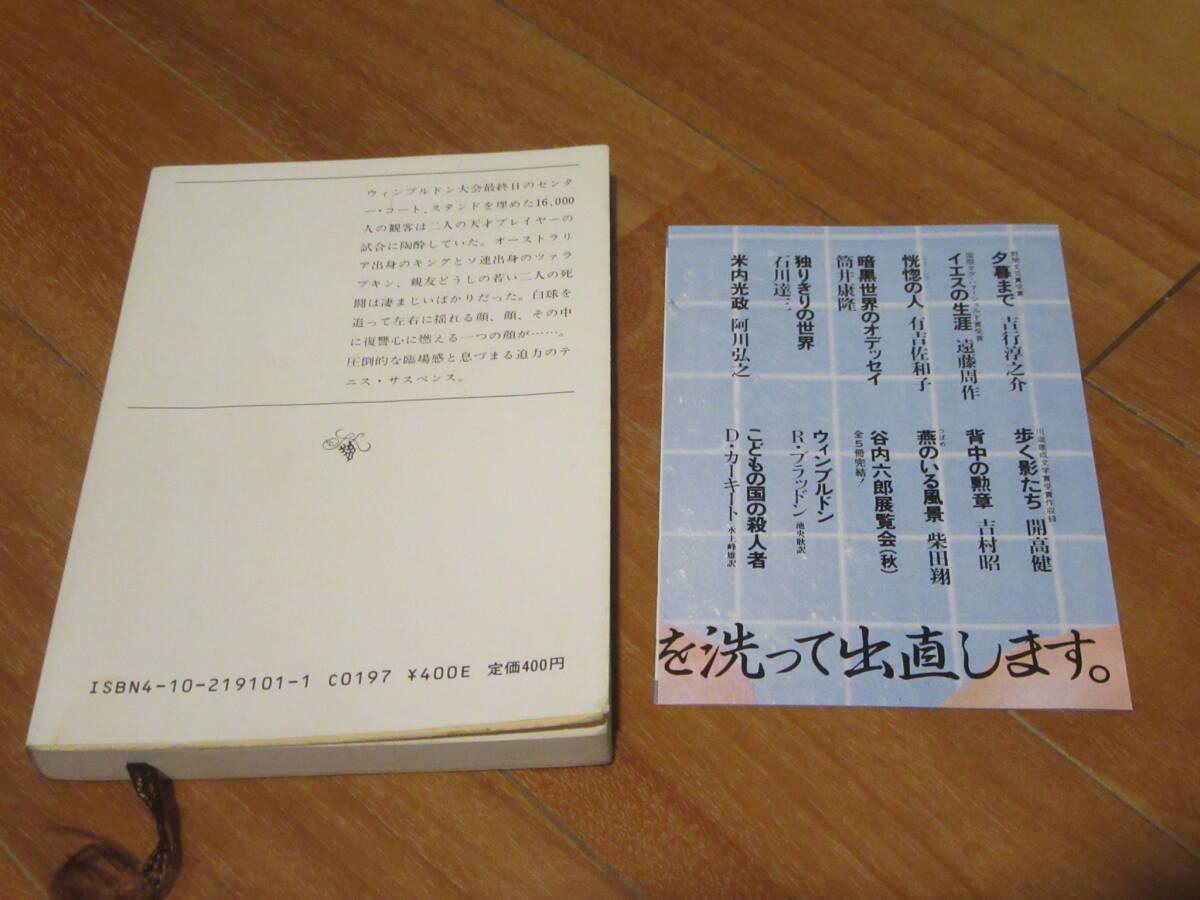 ウィンブルドン大会最終日のセンタ
ー・コート、スタンドを埋めた16,000
人の観客は二人の天才プレイヤーの
試合に陶酔していた。オーストラリ
ア出身のキングとソ連出身のツァラ
プキン、親友どうしの若い二人の死
闘は凄まじいばかりだった。白球を
追って左右に揺れる顔、顔、その中
に復讐心に燃える一つの顔が……。
圧倒的な臨場感と息づまる迫力のテ
ニス・サスペンス。
ISBN4-10-219101-1 C0197 ¥400E 定価400円
野間文芸賞受賞
夕暮まで 吉行淳之介
国際ダグ・ハマーショルド賞受賞
イエスの生涯 遠藤周作
恍惚の人 有吉佐和子
暗黒世界のオデッセイ
筒井康隆
独りきりの世界
石川達三
米内光政 阿川弘之
川端康成文学賞受賞作収録
歩く影たち 開高健
背中の勲章 吉村昭
つばめ
燕のいる風景 柴田翔
谷内六郎展覧会(秋)
全5冊完結!
ウィンブルドン
R・ブラッドン 池央耿訳
こどもの国の殺人者
D・カーキート 水上峰雄訳
を洗って出直します。